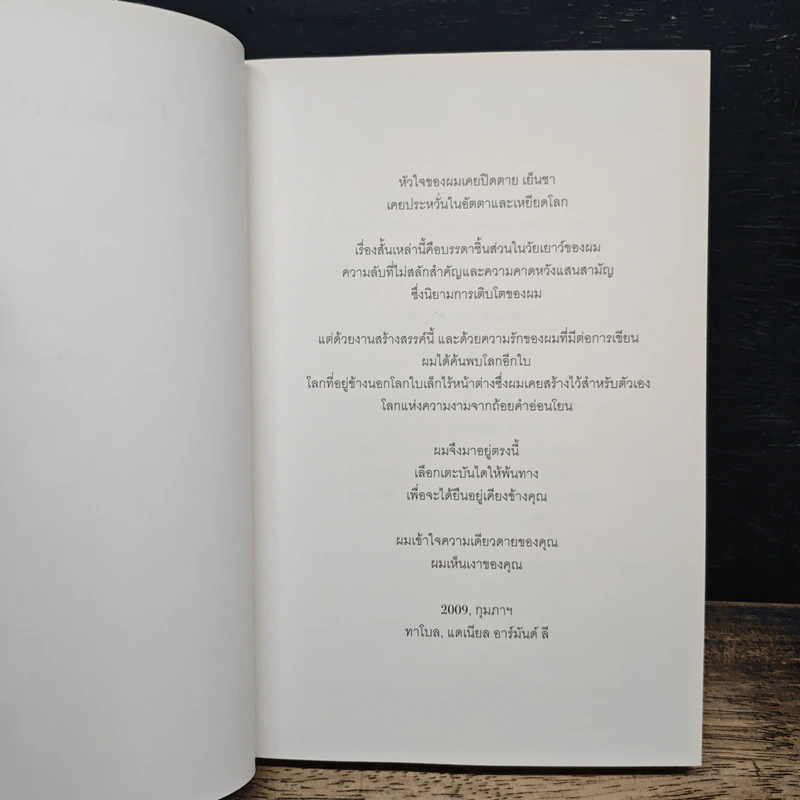 หัวใจของผมเคยปิดตาย เย็นชา
เคยประหวั่นในอัตตาและเหยียดโลก
เรื่องสั้นเหล่านี้คือบรรดาชิ้นส่วนในวัยเยาว์ของผม
ความลับที่ไม่สลักสำคัญและความคาดหวังแสนสามัญ
ซึ่งนิยามการเติบโตของผม
แต่ด้วยงานสร้างสรรค์นี้ และด้วยความรักของผมที่มีต่อการเขียน
ผมได้ค้นพบโลกอีกใบ
โลกที่อยู่ข้างนอกโลกใบเล็กไร้หน้าต่างซึ่งผมเคยสร้างไว้สำหรับตัวเอง
โลกแห่งความงามจากถ้อยคำอ่อนโยน
ผมจึงมาอยู่ตรงนี้
เลือกเตะบันไดให้พ้นทาง
เพื่อจะได้ยืนอยู่เคียงข้างคุณ
ผมเข้าใจความเดียวดายของคุณ
ผมเห็นเงาของคุณ
2009, กุมภาฯ
ทาโบล, แดเนียล อาร์มันด์ ลี